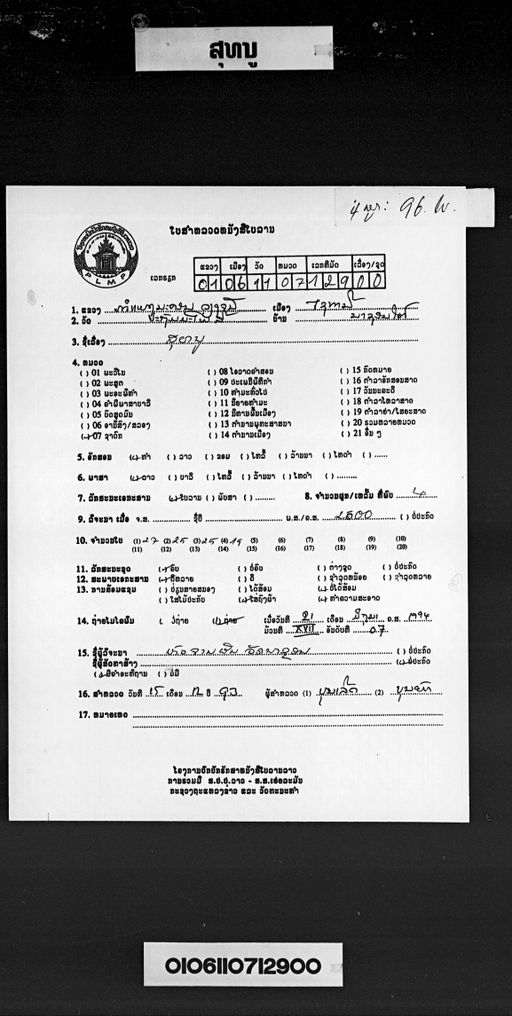 ສຸທນູ
4 ຜູກ: 96. ໃບ.
ໃບສຳຫລວດຫນັງສືໃບລານ
PLMP
ແຂວງ ເມືອງ ວັດ ຫມວດ ເລກທີມັດ ເລື່ອງ/ຊຸດ
ເລກຣຽກ 01 06 11 07 129 00
1. ແຂວງ ເມືອງ ໄຊທານີ
2. ວັດ ບ້ານ
3. ຊື່ເລື່ອງ ສຸທນູ
4. ຫມວດ
( ) 01 ພະວິໄນ ( ) 08 ໂອວາດຄຳສອນ ( ) 15 ກົດຫມາຍ
( ) 02 ພະສູດ ( ) 09 ປະເພນີພິທີກຳ ( ) 16 ຕຳລາອັກສອນສາດ
( ) 03 ພະອະພິທຳ ( ) 10 ທຳມະທົ່ວໄປ ( ) 17 ວັນນະຄະດີ
( ) 04 ຄຳພີພາສາບາລີ ( ) 11 ນິຍາຍທຳມະ ( ) 18 ຕຳລາໂຫລາສາດ
( ) 05 ບົດສູດມົນ ( ) 12 ນິທານພື້ນເມືອງ ( ) 19 ຕຳລາຢາ/ໄສຍະສາດ
( ) 06 ອານິສົງ/ສລອງ ( ) 13 ຕຳນານພຸທະສາສນາ ( ) 20 ຣວມຫລາຍຫມວດ
(✓) 07 ຊາດົກ ( ) 14 ຕຳນານເມືອງ ( ) 21 ອື່ນ ໆ
5. ອັກສອນ (✓) ທຳ ( ) ລາວ ( ) ຂອມ ( ) ໄທລື້ ( ) ລ້ານນາ ( ) ໄທດຳ ( ) ......
6. ພາສາ (✓) ລາວ ( ) ບາລີ ( ) ໄທລື້ ( ) ລ້ານນາ ( ) ໄທດຳ ( ) ......
7. ລັກສະນະເອກະສານ (✓) ໃບລານ ( ) ພັບສາ ( ) ......... 8. ຈຳນວນຜູກ/ເຫລັ້ມ ທີ່ພົບ 4
9. ປີຈະນາ ເມື່ອ ຈ.ສ. ຊື່ປີ ພ.ສ./ຄ.ສ. 2500 ( ) ບໍ່ປະກົດ
10. ຈຳນວນໃບ (1) 27 (2) 25 (3) 25 (4) 19 (5) (6) (7) (8) (9) (10)
(11) (12) (13) (14) (15) (16) (17) (18) (19) (20)
11. ລັກສະນະຊຸດ (✓) ຄົບ ( ) ບໍ່ຄົບ ( ) ຕ່າງຊຸດ ( ) ບໍ່ປະກົດ
12. ສະພາບເອກະສານ (✓) ດີຫລາຍ ( ) ດີ ( ) ຊຳລຸດຫນ້ອຍ ( ) ຊຳລຸດຫລາຍ
13. ການສ້ອມແຊມ ( ) ປ່ຽນສາຍສນອງ ( ) ໄດ້ສ້ອມ (✓) ບໍ່ໄດ້ສ້ອມ
( ) ໃສ່ໄມ້ປະກັບ (✓) ໃສ່ຖົງຜ້າ (✓) ທຳຄວາມສະອາດ
14. ຖ່າຍໄມໂຄຟິມ ( ) ບໍ່ຖ່າຍ (✓) ຖ່າຍ ເມື່ອວັນທີ 21 ເດືອນ ມີຖຸນາ ຄ.ສ. 1994
ມ້ວນທີ XXII ອັນດັບທີ 07
15. ຊື່ຜູ້ລິຈະນາ ( ) ບໍ່ປະກົດ
ຊື່ຜູ້ສັດທາສ້າງ (✓) ບໍ່ປະກົດ
(✓) ມີຄຳອະທິຖານ ( ) ບໍ່ມີ
16. ສຳຫລວດ ວັນທີ 15 ເດືອນ 12 ປີ 93 ຜູ້ສຳຫລວດ (1) ບຸນເລີດ (2)
17. ຫມາຍເຫດ
ໂຄງການປົກປັກຮັກສາຫນັງສືໃບລານລາວ
ການຮວມມື ສ.ປ.ປ.ລາວ - ສ.ສ.ເຢຍລະມັນ
ກະຊວງຖະແຫລງຂ່າວ ແລະ ວັດທະນະທຳ
0106110712900